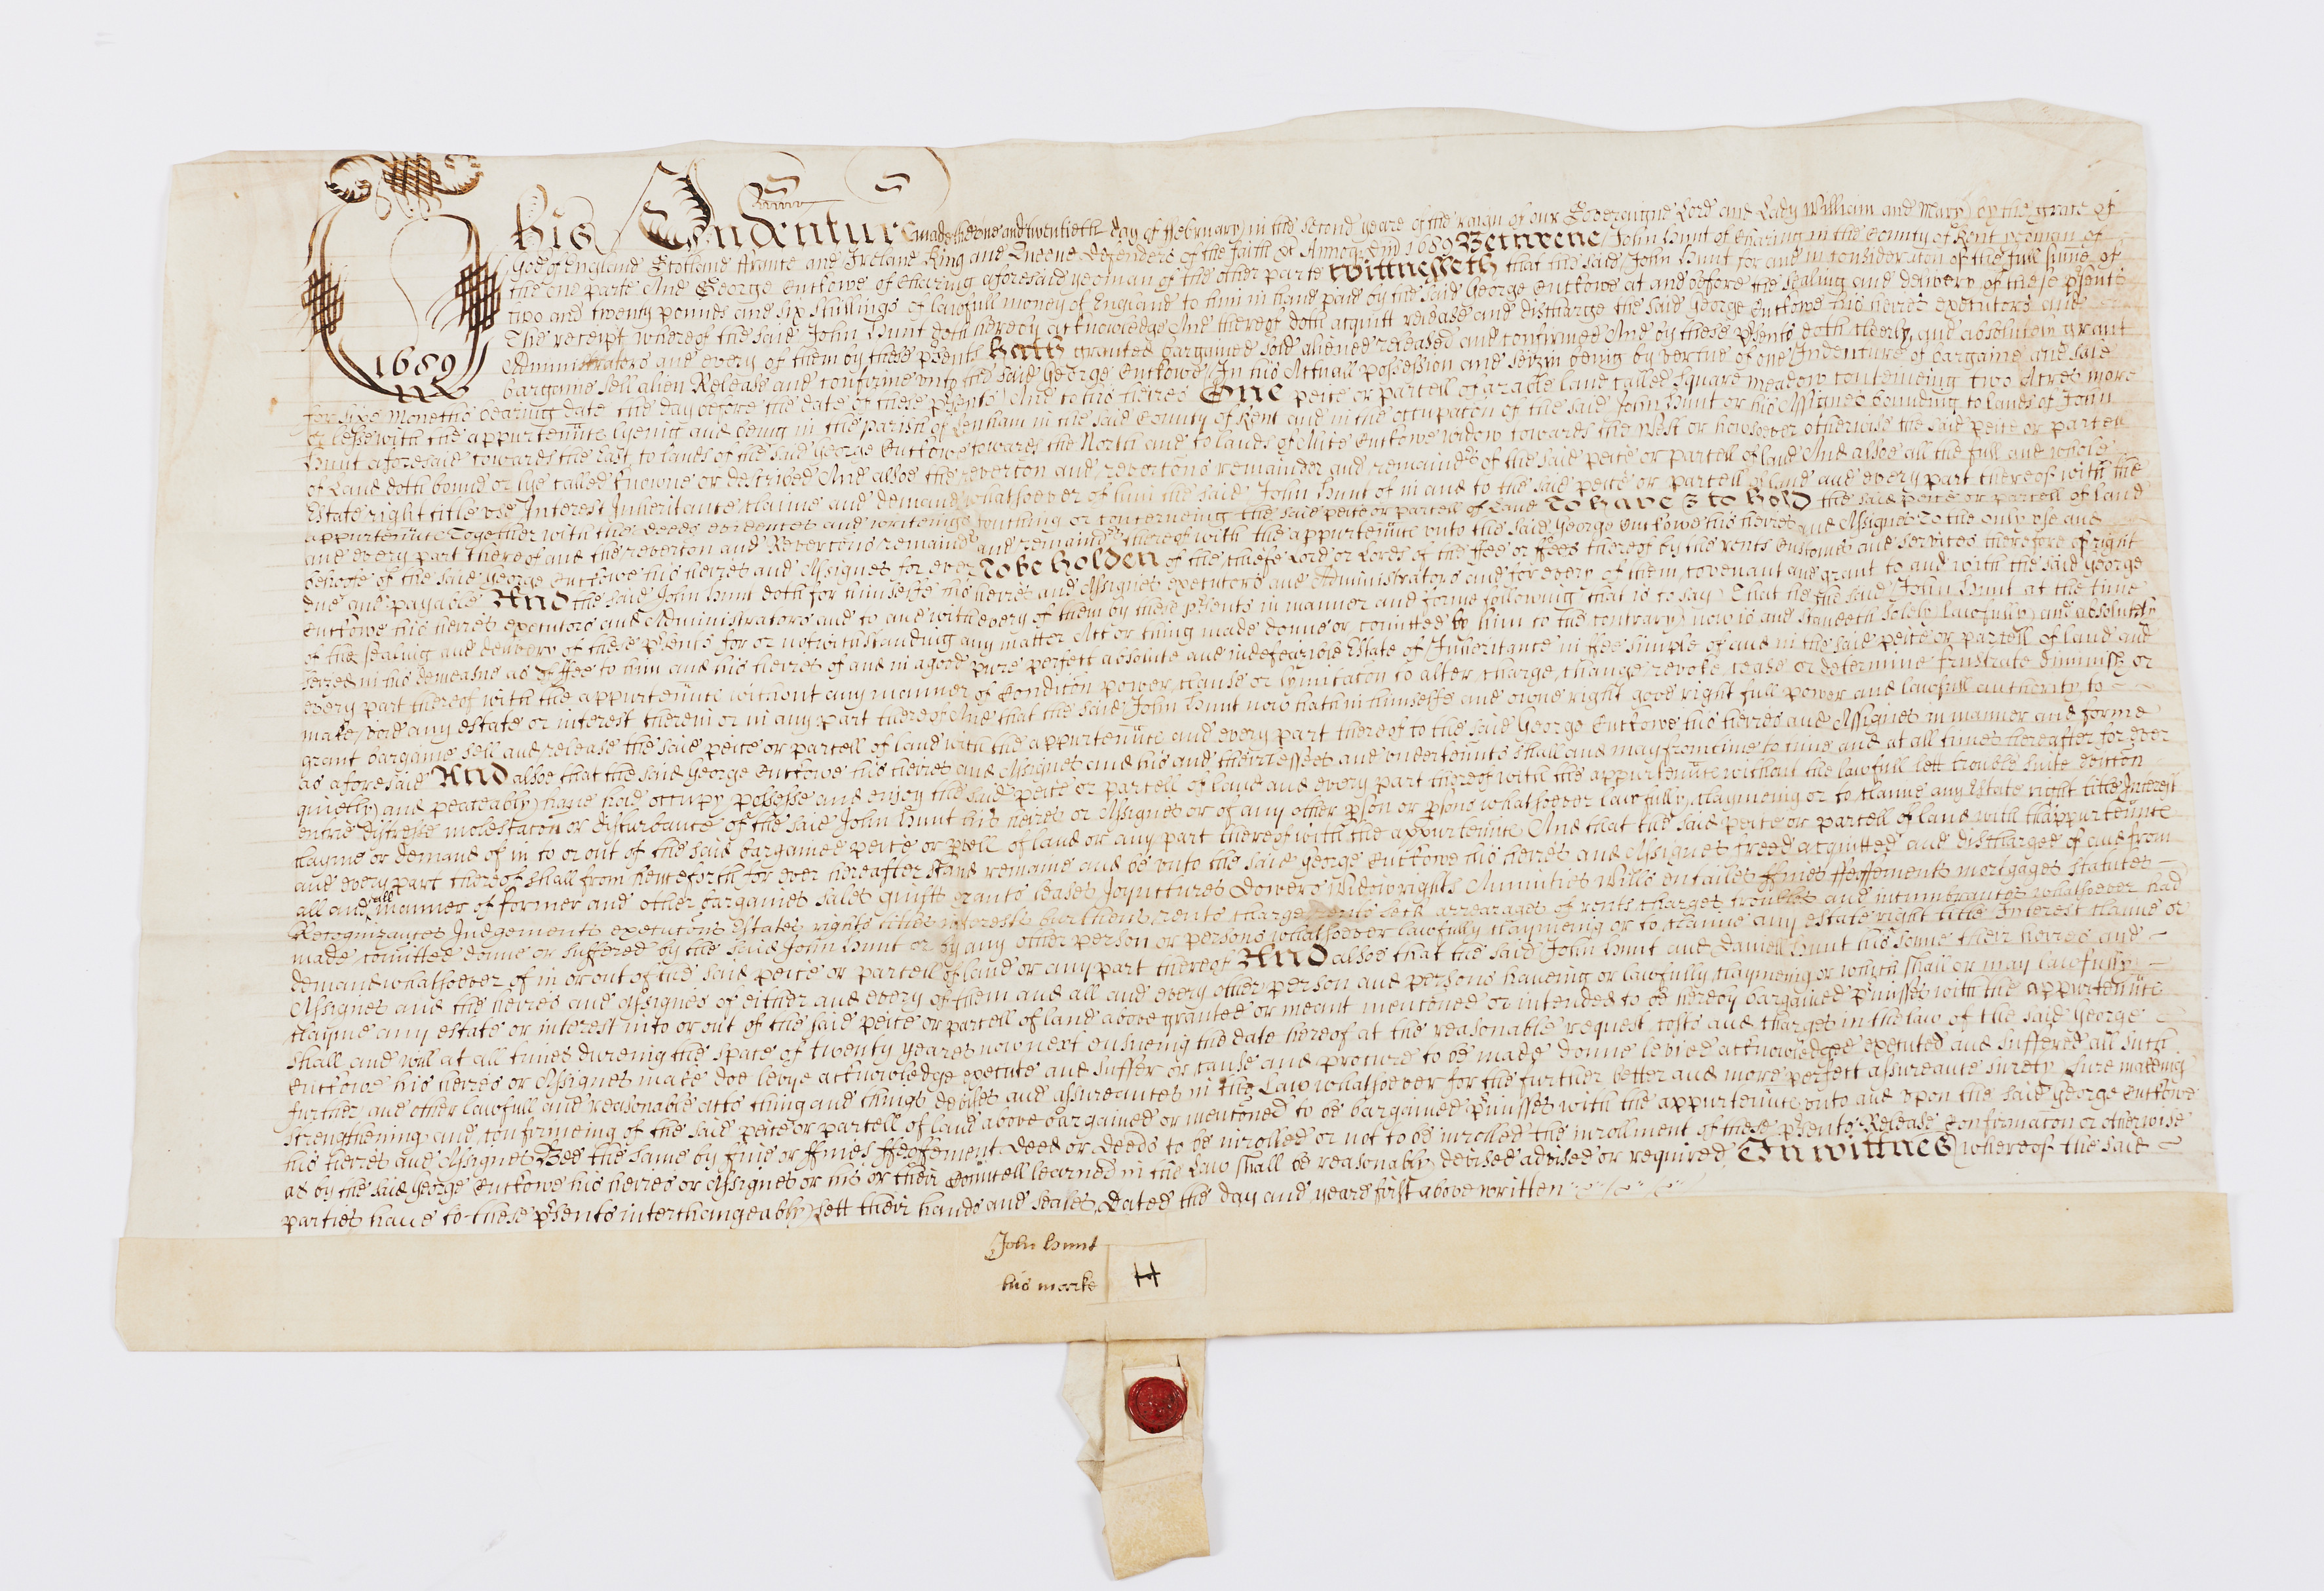 This Indenture made the one and twentieth day of ffebruary in the second yeare of the raign of our Soveraigne Lord and Lady William and Mary by the grace of
God of England Scotland ffrance and Ireland King and Queene Defenders of the faith &c Annoq Dm 1689 Betweene John Hunt of Charing in the County of Kent yeoman of
the one parte And George Cuckowe of Charing aforesaid yeoman of the other parte Wittnesseth that the said John Hunt for and in consideracon of the full sume of
two and twenty pounds and six shillings of lawfull money of England to him in hand paid by the said George Cuckowe at and before the sealing and delivery of these psents
The receipt whereof the said John Hunt doth hereby acknowledge And thereof doth acquitt release and discharge the said George Cuckowe his heires executors and
1689
Administrators and every of them by these psents Hath granted bargained sold aliened released and confirmed And by these psents doth cleerly and absolutely grant
bargaine sell alien Release and confirme unto the said George Cuckowe (In his Actuall possession and seizin being by vertue of one Indenture of bargaine and sale
for sixe Moneths bearing date the day before the date of these psents) And to his heires One peice or parcell of arable land called Square meadow conteineing two Acres more
or lesse with the appurtenнcs lyeing and being in the parish of Lenham in the said County of Kent and in the occupacon of the said John Hunt or his Assignes bounding to lands of John
Hunt aforesaid towards the East to lands of the said George Cuckowe towards the North and to lands of Cuckowe widow towards the West or howsoever otherwise the said peice or parcell
of Land doth bound or lye called knowne or described And alsoe the revercon and revercons remainder and remainders of the said peice or parcell of land And alsoe all the full and whole
Estate right title use Interest Inheritance claime and demand whatsoever of him the said John Hunt of in and to the said peice or parcell of land and every part thereof with the
appurtenncs Together with the deeds evidences and writeings touching or concerneing the said peice or parcell of Land To have & to hold the said peice or parcell of land
and every part thereof and the revercon and Revercons remainder and remainders thereof with the appurtenncs unto the said George Cuckowe his heires and Assignes To the only use and
behoofe of the said George Cuckowe his heires and Assignes for ever To be holden of the cheife Lord or Lords of the ffee or ffees thereof by the rents customes and services therefore of right
due and payable And the said John Hunt doth for himselfe his heires and Assignes executors and Administrators and for every of them covenant and grant to and with the said George
Cuckowe his heires executors and Administrators and to and with every of them by these psents in manner and forme following that is to say That he the said John Hunt at the time
of the sealing and delivery of these psents for or notwithstanding any matter Act or thing made donne or comitted by him to the contrary now is and standeth solely lawfully and absolutely
seized in his demeasne as of ffee to him and his heires of and in a good pure perfect absolute and indefeazible Estate of Inheritance in ffee simple of and in the said peice or parcell of land and
every part thereof with the appurtenncs without any manner of Condicon power clause or lymitacon to alter charge change revoke cease or determine frustrate diminish or
make void any estate or interest therein or in any part thereof And that the said John Hunt now hath in himselfe and owne right good right full power and lawfull authority to
grant bargaine sell and release the said peice or parcell of land with the appurtenncs and every part thereof to the said George Cuckowe his heires and Assignes in manner and forme
as aforesaid And alsoe that the said George Cuckowe his heires and Assignes and his and their lessees and undertennts shall and may from time to time and at all times hereafter for ever
quietly and peaceably have hold occupy possesse and enjoy the said peice or parcell of land and every part thereof with the appurtenncs without the lawfull lett trouble suite eviccon
entrie distresse molestacon or disturbance of the said John Hunt his heires or Assignes or of any other pson or psons whatsoever lawfully claymeing or to claime any Estate right title Interest
clayme or demand of in to or out of the said bargained peice or pcell of land or any part thereof with the appurtenncs And that the said peice or parcell of land with thappurtenncs
and every part thereof shall from henceforth for ever hereafter stand remaine and be unto the said George Cuckowe his heires and Assignes freed acquitted and discharged of and from
all and all manner of former and other bargaines sales guifts grants leases Joynctures Dowers Widowrights Annuities Wills entailes ffines ffeoffements mortgages statutes
Recognizances Judgements execucons Estates rights titles interests burthens rents charge rents seck arrearages of rents charges troubles and incumbrances whatsoever had
made comitted donne or suffered by the said John Hunt or by any other person or persons whatsoever lawfully claymeing or to claime any estate right title Interest claime or
demand whatsoever of in or out of the said peice or parcell of land or any part thereof And alsoe that the said John Hunt and Daniell Hunt his sonne their heires and
Assignes and the heires and Assignes of either and every of them and all and every other person and persons haveing or lawfully claymeing or which shall or may lawfully
clayme any estate or interest in to or out of the said peice or parcell of land above granted or meant mencioned or intended to be hereby bargained pmisses with the appurtenncs
shall and will at all times dureing the space of twenty yeares now next ensueing the date hereof at the reasonable request costs and charges in the law of the said George
Cuckowe his heires or Assignes make doe levye acknowledge execute and suffer or cause and procure to be made donne levied acknowledged executed and suffered all such
further and other lawfull and reasonable acts thing and things devises and assurances in the Law whatsoever for the further better and more perfect assureance surety sure makeing
strengthening and confirmeing of the said peice or parcell of land above bargained or mencioned to be bargained pmisses with the appurtenncs unto and upon the said George Cuckowe
his heires and Assignes Bee the same by fine or ffines ffeoffement deed or deeds to be inrolled or not to be inrolled the inrollment of these psents Release Confirmacon or otherwise
as by the said George Cuckowe his heires or Assignes or his or their Councell learned in the Law shall be reasonably devised advised or required In wittnes whereof the said
parties have to these psents interchangeably sett their hands and seales Dated the day and yeare first above written
John Hunt
his marke H